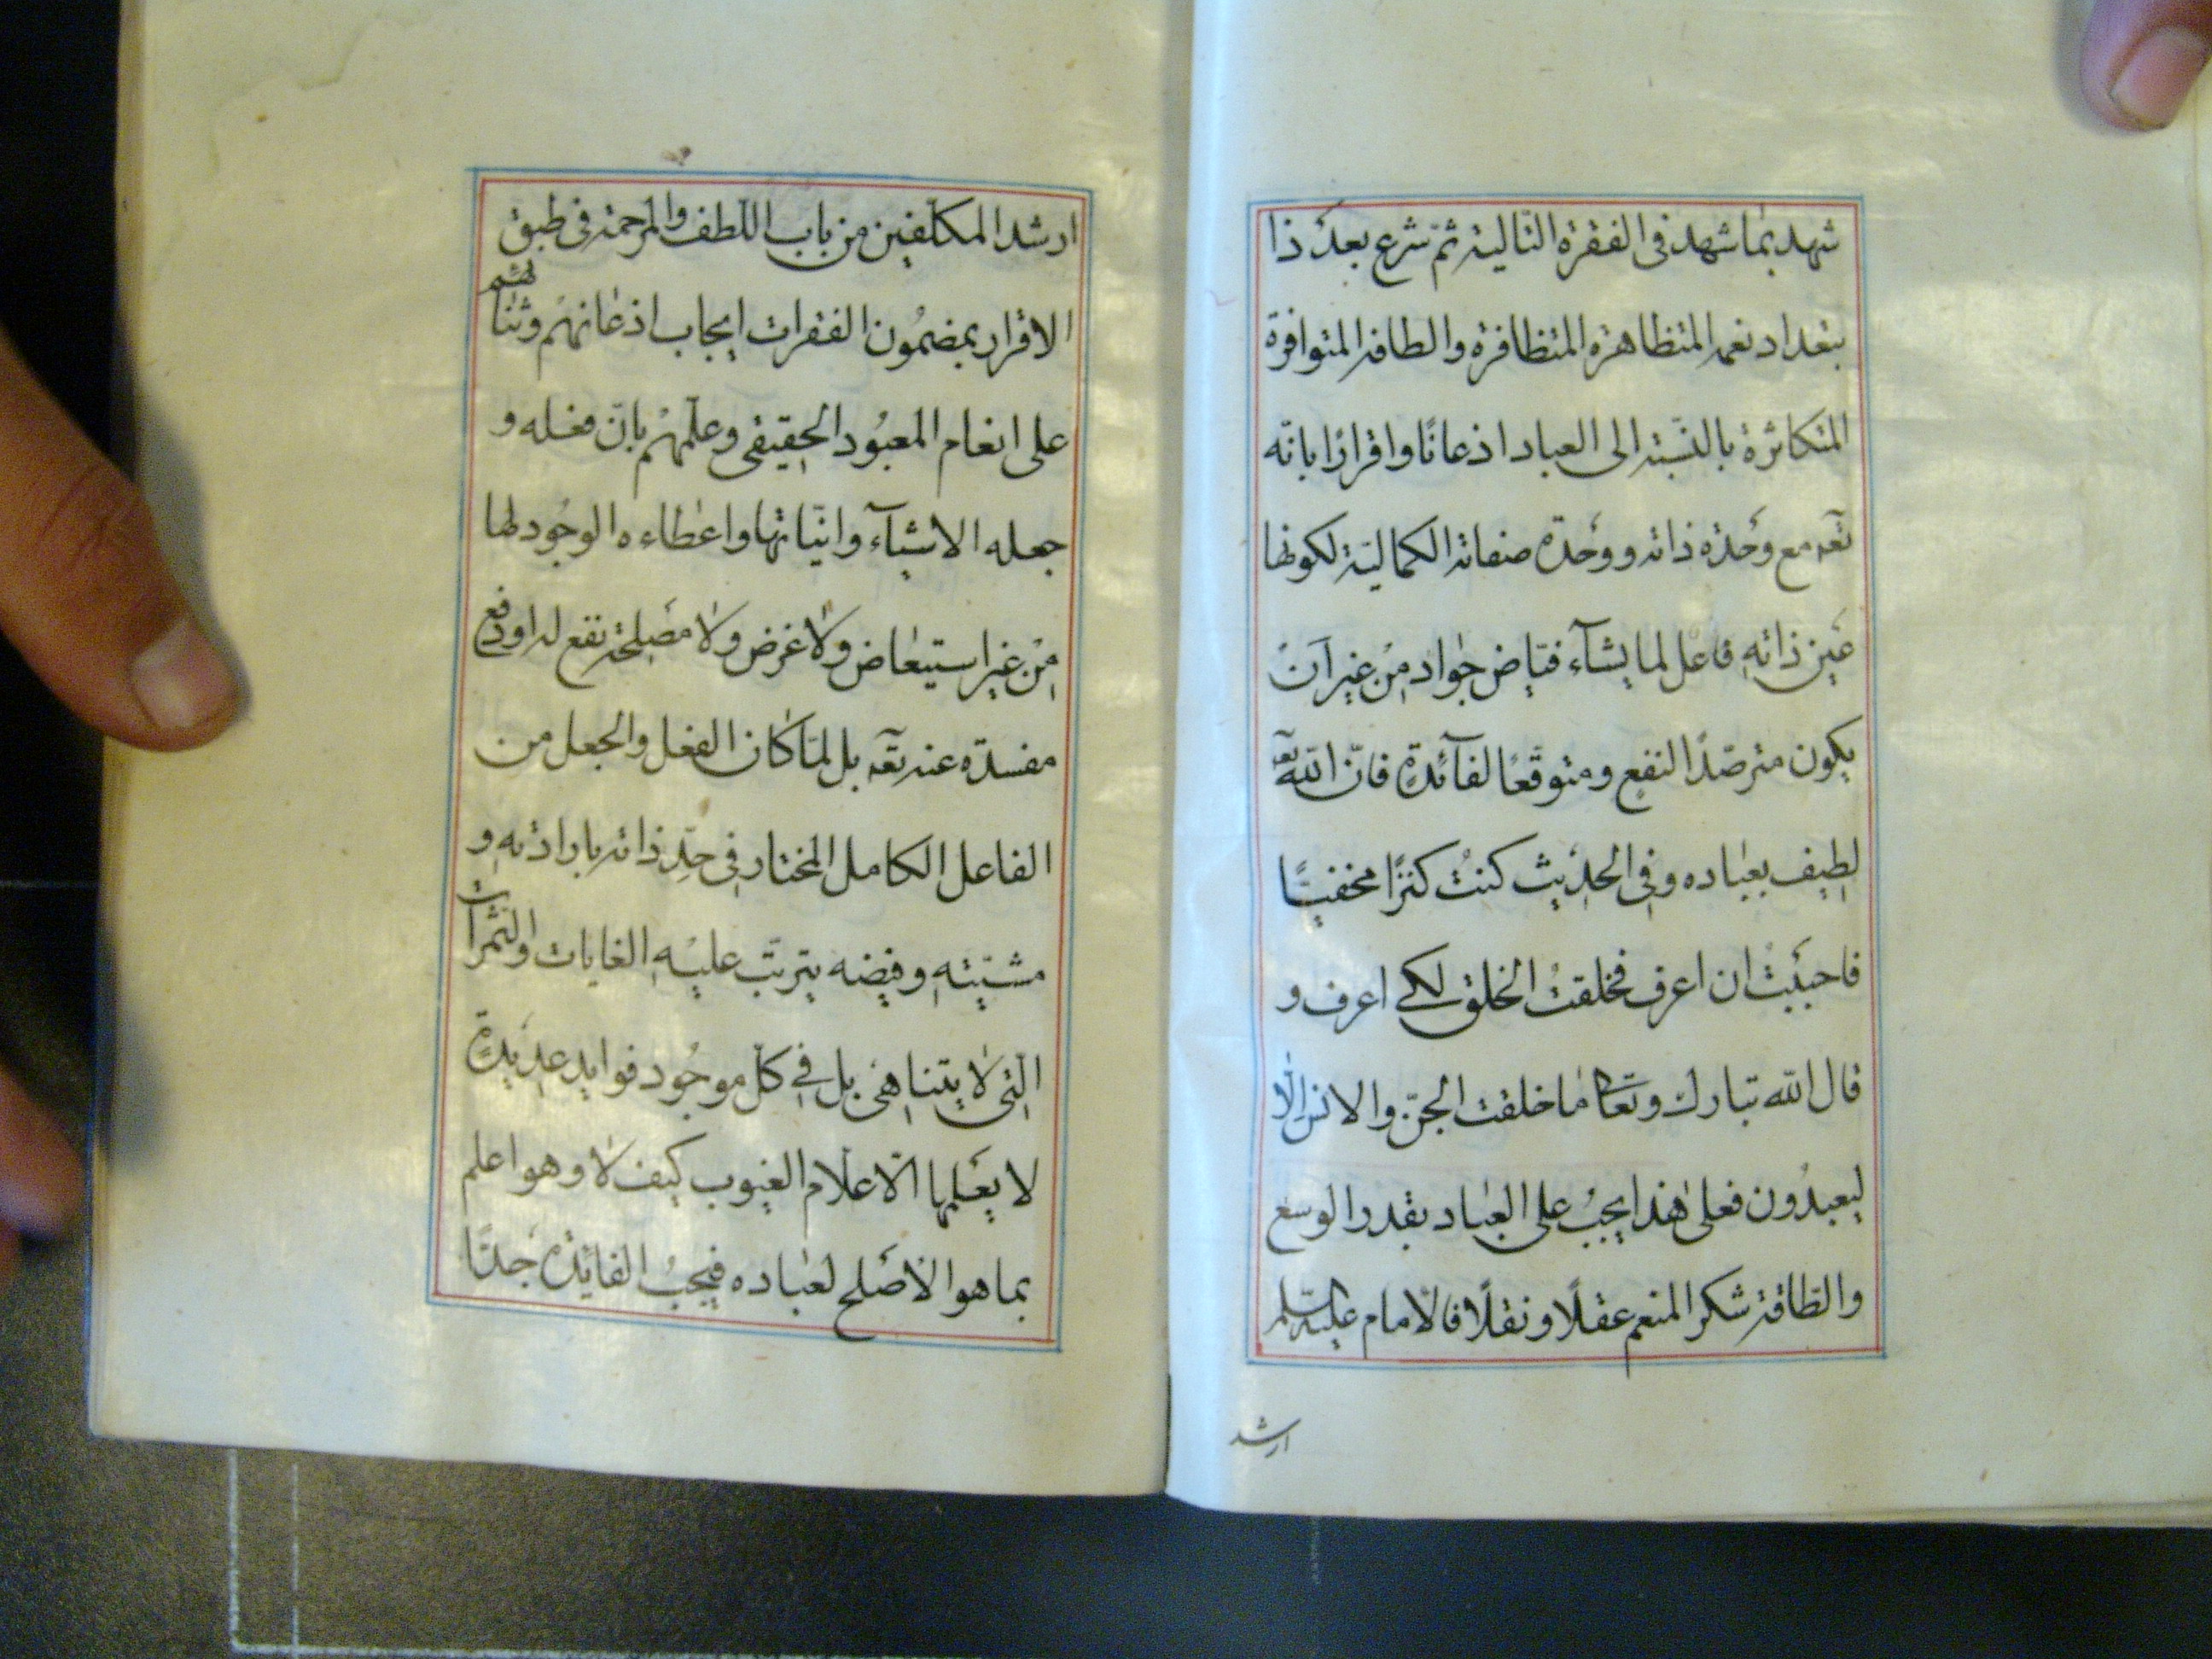 شهد بما شهد فى الفقرة التالية ثمّ شرع بعد ذا
بتعداد نعمه المتظاهرة المتظافرة والطافه المتوافرة
المتكاثرة بالنّسبة الى العباد اذعانًا واقرارًا بانّه
تعٓه مع وَحْدة ذاته ووَحدة صفاته الكماليّة لكونها
عَين ذاتهِ فاعل لما يشآء فيّاض جواد مِنْ غير اَنْ
يكون مترصّدًا لنفعٍ ومتوقّعًا لفآئدةٍ فانّ اللّه تعٓه
لطيف بعباده وفى الحديث كنتُ كنزًا مخفيّا
فاحببتُ ان اعرف فخلقتُ الخلق لكے اعرف و
قال اللّه تبارك وتعٓا ما خلقت الجنّ والانس الّا
ليعبدُون فعلى هٰذا يجبُ على العباد بقدر الوسْع
والطّاقة شكر المنعم عقلًا ونقلًا فالامام عليه السلم
ارشد
ارشد المكلّفين من باب اللّطف والمرحمة فى طبق
الاقرار بمضمُون الفقرات ايجاب اذعانهُم وثنائهم
على انعام المعبُود الحقيقى وعلّمهُم بانّ فعله و
جعله الاشيآء وانيّاتها واعطاءه الوجُود لها
مِنْ غير استيعاض ولا غرض ولا مصْلحة نفع له او دفع
مفسدة عنه تعٓه بل لمّا كان الفعل والجعل من
الفاعل الكامل المختار فى حدِّ ذاته بارادتهِ و
مشيّتهِ وفيضه يترتّب عليْهِ الغايات والثّمرات
الّتى لا يتناهى بل فے كلّ موجُود فوايد عديدةٍ
لا يعْلمها الّا علّام الغيوب كيف لا وهو اعلم
بما هو الاصْلح لعباده فيجبُ الفائدة جدّا